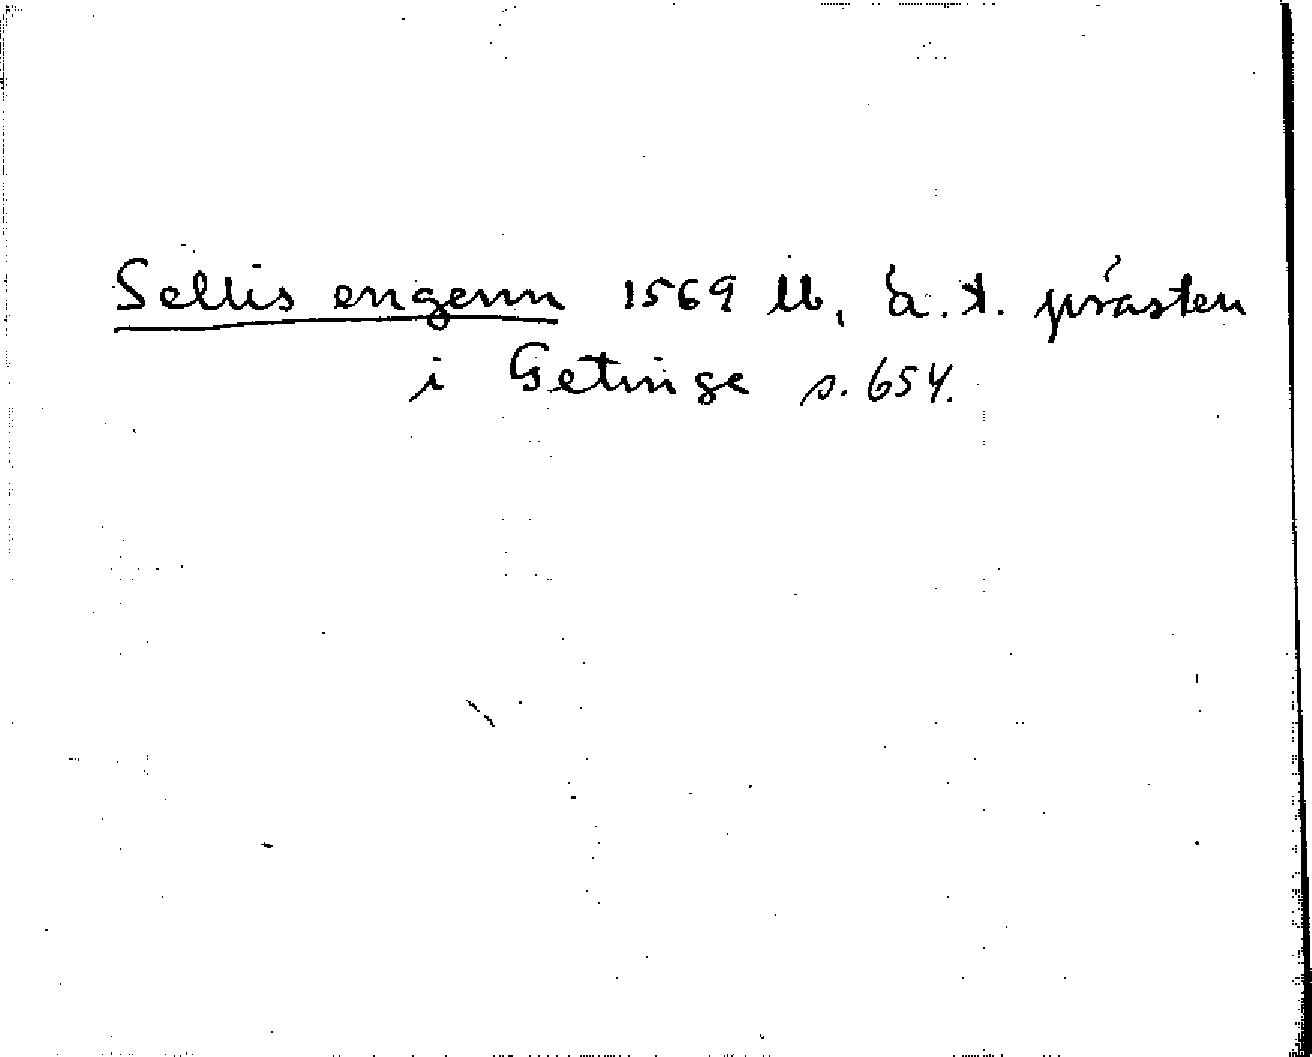 Sellis engenn 1569 lb, ä. t. prästen
i Getinge s. 654.